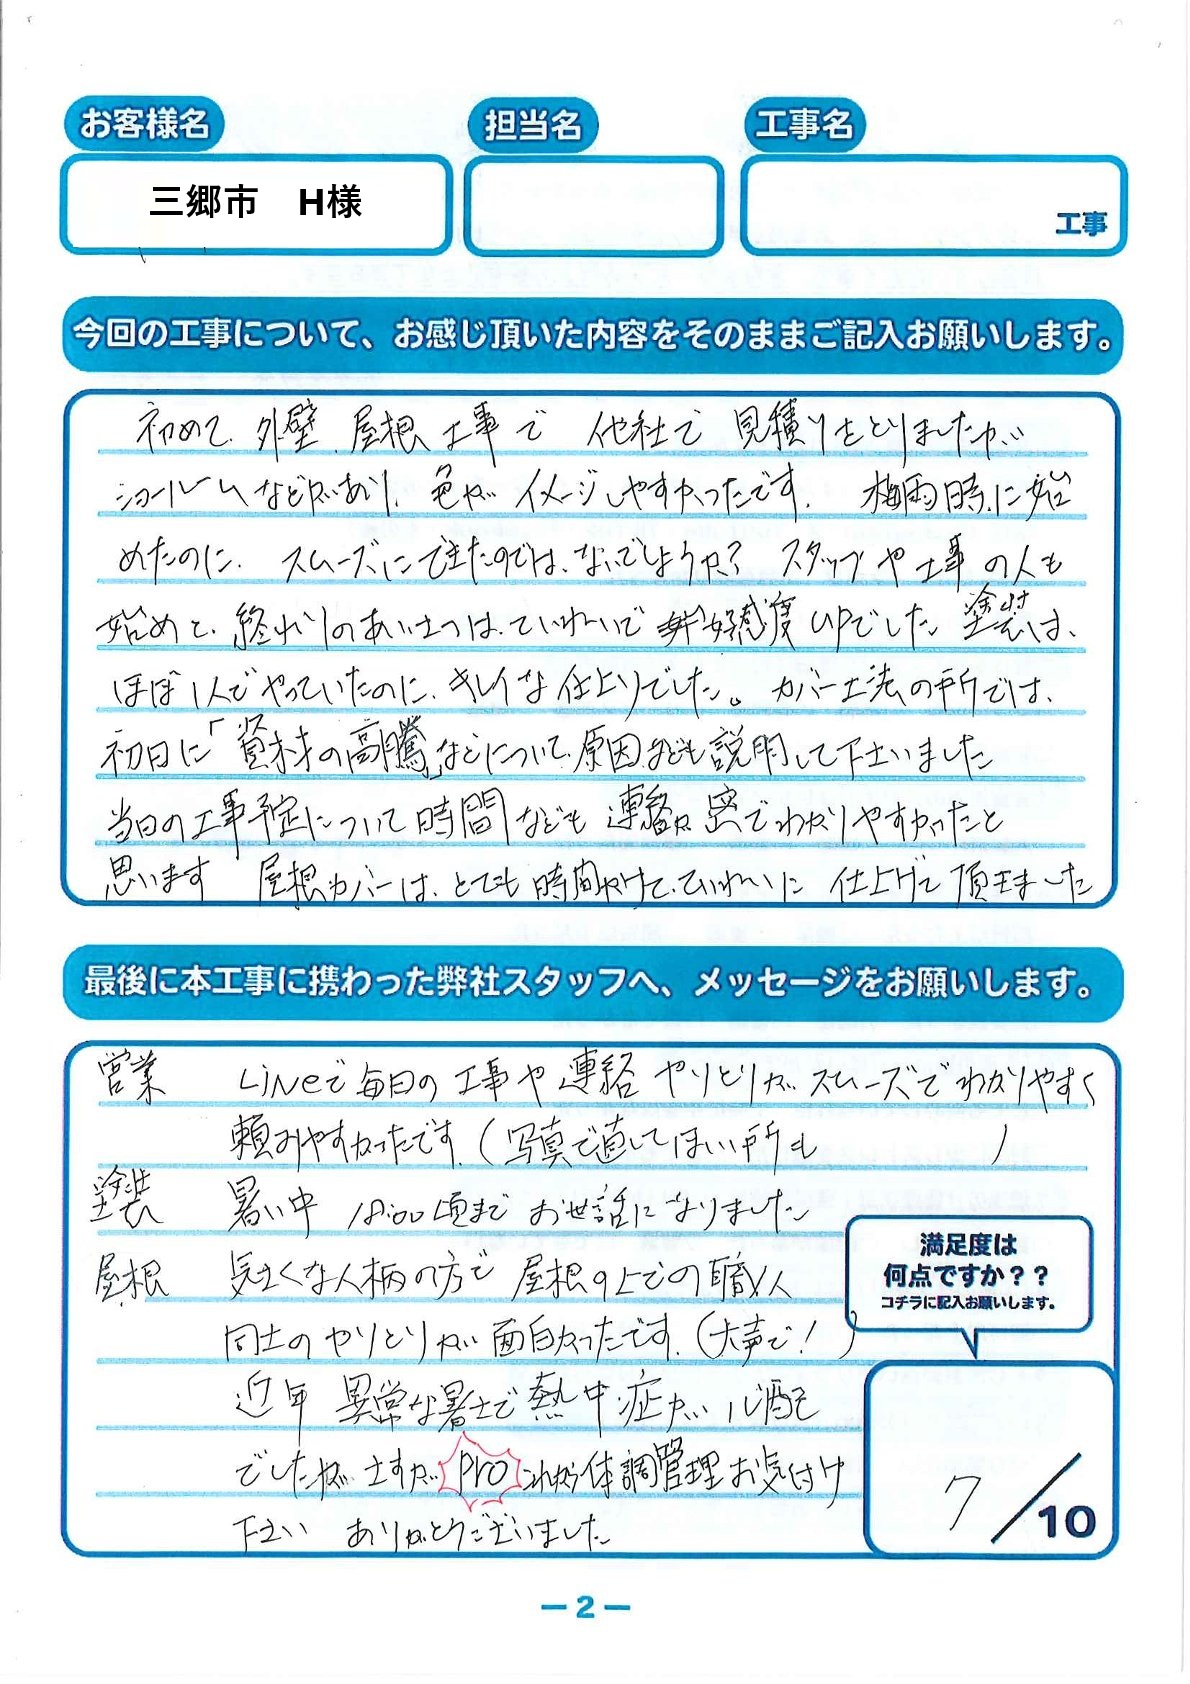 お客様名
担当名
工事名
三郷市　H様
工事
今回の工事について、お感じ頂いた内容をそのままご記入お願いします。
初めて、外壁、屋根工事で　他社で　見積りをとりましたが
ショールームなどがあり、色が　イメージしやすかったです。　梅雨時に始
めたのに、スムーズにできたのでは、ないでしょうか？　スタッフや工事の人も
始めと、終わりのあいさつは、ていねいで　好感度UPでした　塗装は、
ほぼ1人でやっていたのに、キレイな仕上りでした。カバー工法の所では、
初日に「資材の高騰」などについて、原因なども説明して下さいました
当日の工事予定について時間なども　連絡が密でわかりやすかったと
思います　屋根カバーは、とても時間かけて、ていねいに　仕上げて頂きました
最後に本工事に携わった弊社スタッフへ、メッセージをお願いします。
営業　LiNeで毎日の工事や連絡　やりとりが　スムーズでわかりやすく
頼みやすかったです。（写真で直してほしい所も　）
塗装　暑い中　18:00頃まで　お世話になりました
屋根　気さくな人柄の方で　屋根の上での職人
同士のやりとりが　面白かったです。（大声で！　）
近年　異常な暑さで熱中症が　心配
でしたが　さすが　pro　これから体調管理お気付け
下さい　ありがとうございました
満足度は
何点ですか？？
コチラに記入お願いします。
7／10
－2－